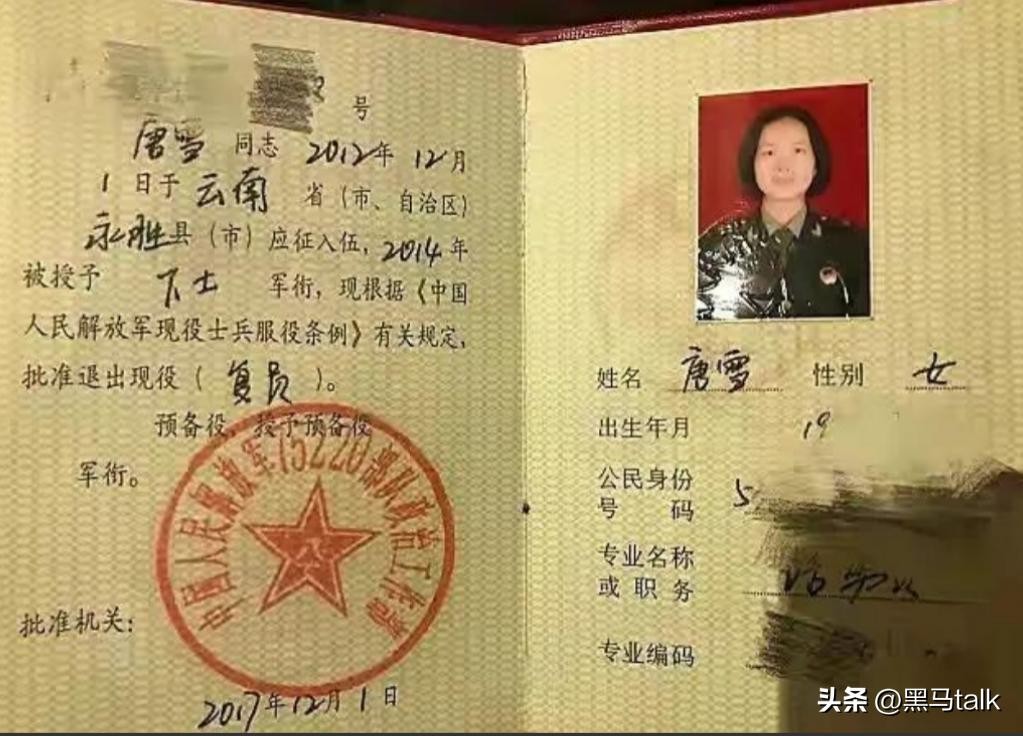 号
唐雪 同志 2012年 12月
1 日于 云南 省（市、自治区）
永胜县（市）应征入伍，2014年
被授予 下士 军衔，现根据《中国
人民解放军现役士兵服役条例》有关规定，
批准退出现役（ 复员 ）。
预备役，授予预备役
军衔。
中国人民解放军75220部队政治工作部
批准机关：
2017年12月1日
姓名 唐雪 性别 女
出生年月 19
公民身份
号 码 5
专业名称
或职务
专业编码
头条 @黑马talk